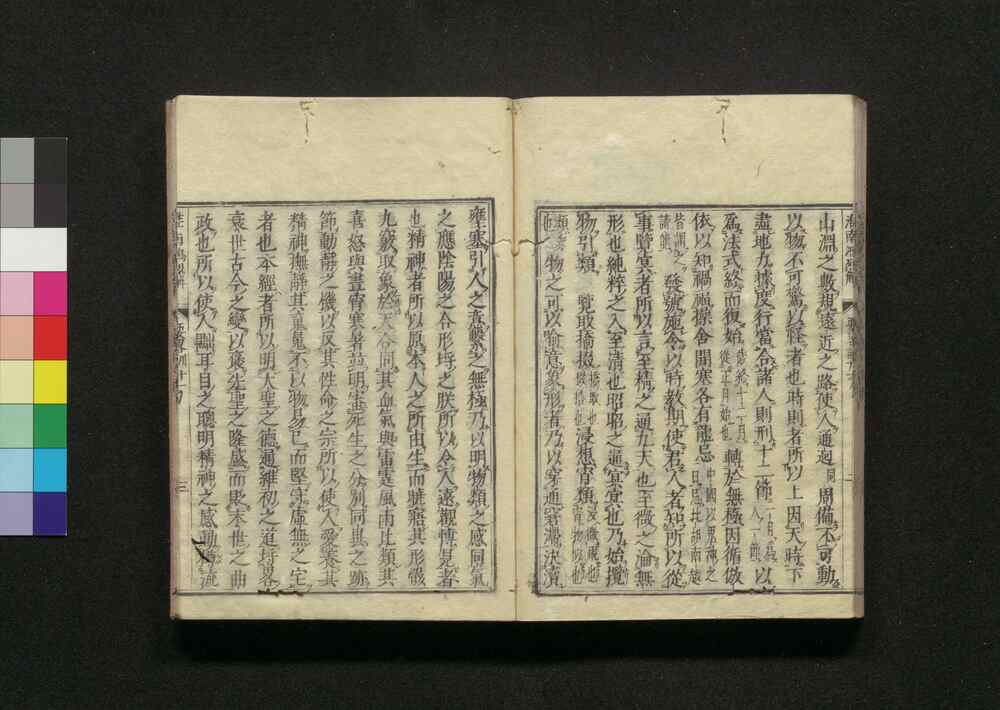 山淵之數規遠近之路使人通迥周備不可動
以物不可驚以怪者也時則者所以上因天時下
盡地力據度行當合諸人則刑十二節一月為一節以
為法式終而復始歲終十二月從正月始也轉於無極因循倣
依以知禍福操舍開塞各有龍忌中國以鬼神之日忌北胡南越
皆謂之請龍發號施令以時教期使君人者知所以從
事覽冥者所以言至精之通九天也至微之淪無
形也純粹之入至清也昭昭之通冥冥也乃始攬
物引類覽取撟掇撟取也掇拾也浸想宵類浸微視也宵物似也
類眾也物之可以喻意象形者乃以穿通窘滯決瀆
壅塞引人之意繫之無極乃以明物類之感同氣
之應陰陽之合形埒之朕所以令人遠觀博見者
也精神者所以原本人之所由生而曉寤其形骸
九竅取象於天合同其血氣與雷霆風雨比類其
喜怒與晝宵寒暑並明審死生之分別同異之跡
節動靜之機以反其性命之宗所以使人愛養其
精神撫靜其魂魄不以物易己而堅守虛無之宅
者也本經者所以明大聖之德通維初之道埒畧
衰世古今之變以褒先聖之隆盛而貶末世之曲
政也所以使人黜耳目之聰明精神之感動樽流